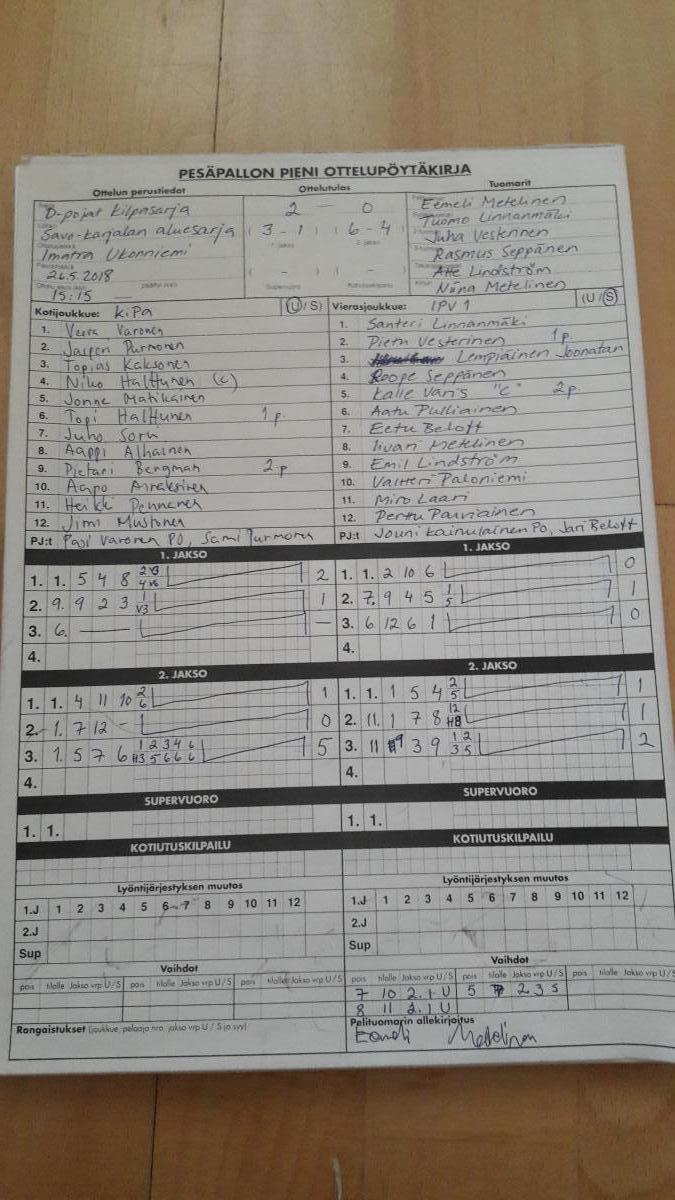 PESÄPALLON PIENI OTTELUPÖYTÄKIRJA
Ottelun perustiedot Ottelutulos Tuomarit
D-pojat kilpasarja 2 - 0 Eemeli Metelinen
Savo-karjalan aluesarja (3-1) (6-4) Tuomo Linnanmäki
Imatra Ukonniemi Juha Vesterinen
26.5.2018 (-) (-) Rasmus Seppänen
15:15 — Supervuoro Kotiutuskilpailu Atte Lindström
Niina Metelinen
Kotijoukkue: KiPa (U/S) Vierasjoukkue: IPV 1 (U/S)
1. Varonen 1. Santeri Linnanmäki
2. Jasperi Purmonen 2. Pietu Vesterinen 1p.
3. Topias Kaksonen 3. Lempiäinen Joonatan
4. Niko Halttunen (c) 4. Roope Seppänen
5. Jonne Matikainen 5. Kalle Varis "C" 2p.
6. Topi Halttunen 1p. 6. Aatu Pulliainen
7. Juho Sorsa 7. Eetu Beloft
8. Aappi Alhainen 8. Iivari Metelinen
9. Pietari Bergman 2.p 9. Emil Lindström
10. Aapo Airaksinen 10. Valtteri Paloniemi
11. Heikki Pennanen 11. Miro Laari
12. Jimi Mustonen 12. Perttu Parviainen
PJ:t Pasi Varonen PO, Sami Purmonen PJ:t Jouni Kainulainen PO, Jari Beloft
1. JAKSO 1. JAKSO
1. 1. 5 4 8 2 v3 4 v6 2 1. 1. 2 10 6 0
2. 9. 9 2 3 1 v3 1 2. 7. 9 4 5 1 5 1
3. 6. — — 3. 6 12 6 1 0
4. 4.
2. JAKSO 2. JAKSO
1. 1. 4 11 10 2 6 1 1. 1. 1 5 4 2 5 1
2. 1. 7 12 - 0 2. 11. 1 7 8 12 H8 1
3. 1. 5 7 6 1 2 3 4 6 H3 5 6 6 6 5 3. 11 9 3 9 1 2 3 5 2
4. 4.
SUPERVUORO SUPERVUORO
1. 1. 1. 1.
KOTIUTUSKILPAILU KOTIUTUSKILPAILU
Lyöntijärjestyksen muutos Lyöntijärjestyksen muutos
1.J 1 2 3 4 5 6 7 8 9 10 11 12 1.J 1 2 3 4 5 6 7 8 9 10 11 12
2.J 2.J
Sup Sup
Vaihdot Vaihdot
pois tilalle Jakso vrp U/S pois tilalle Jakso vrp U/S pois tilalle Jakso vrp U/S pois tilalle Jakso vrp U/S pois tilalle Jakso vrp U/S pois tilalle Jakso vrp U/S
7 10 2. 1 U 5 7 2 3 S
8 11 2. 1 U
Rangaistukset (joukkue, pelaaja nro, jakso vrp U/S ja syy) Pelituomarin allekirjoitus
Eemeli Metelinen